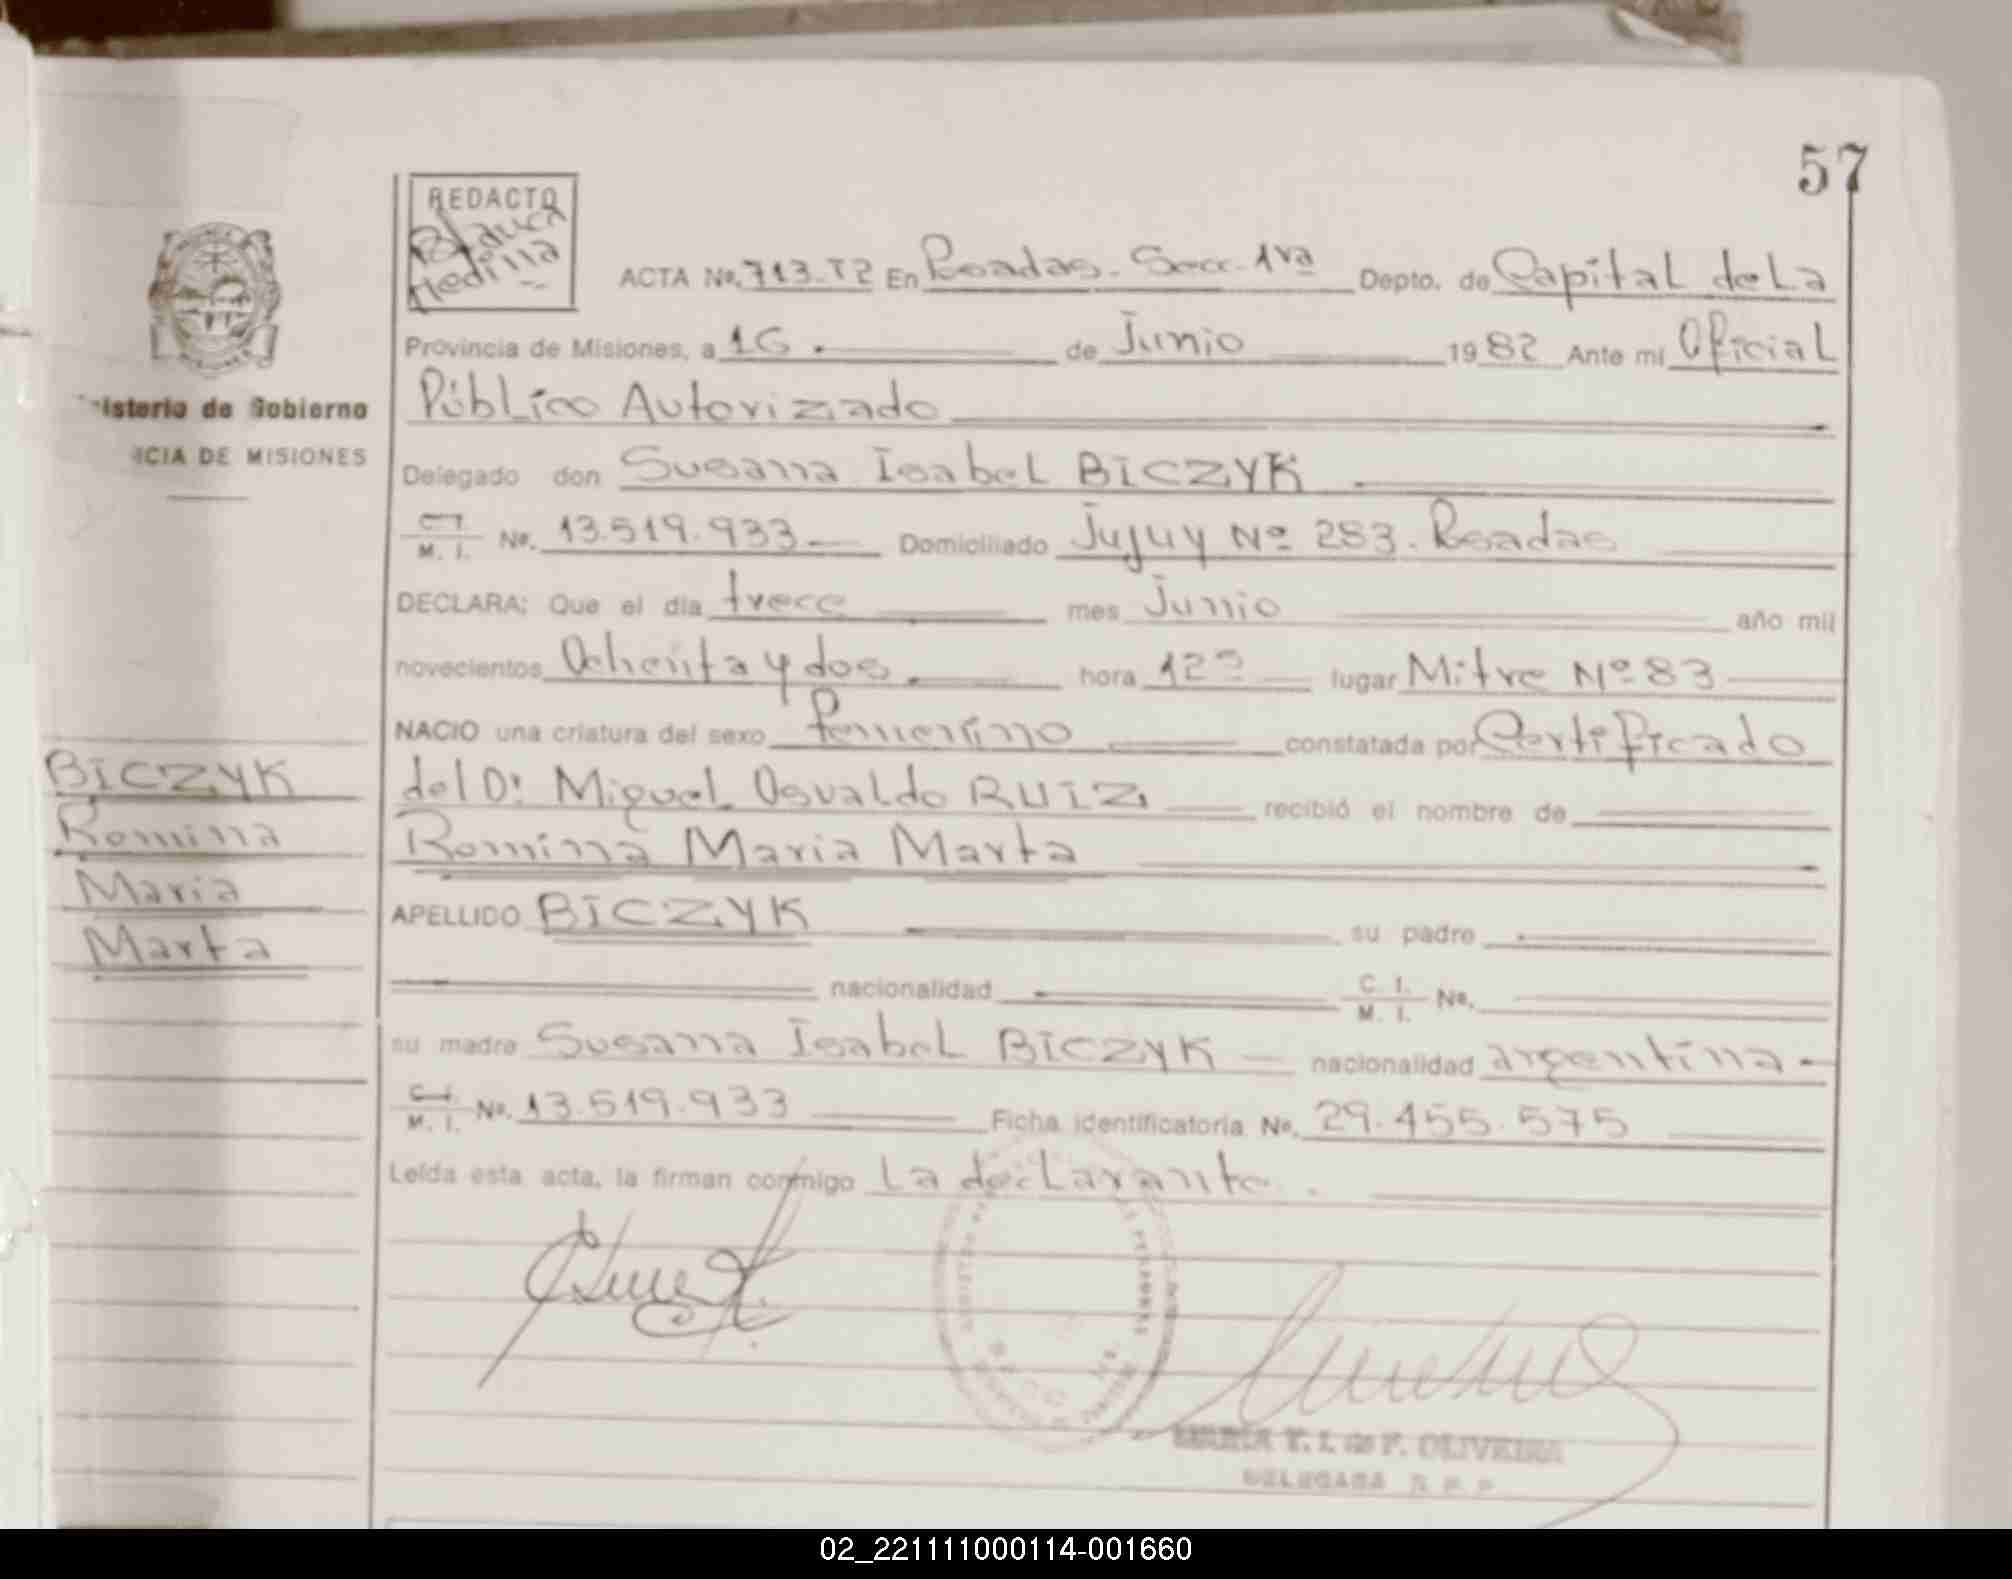 57
REDACTO
Blanca
Medina
ACTA No. 713-T2 En Posadas. Secc. 1ra Depto. de Capital de La
Provincia de Misiones, a 16 de Junio 1982 Ante mi Oficial
Público Autorizado
isterio de Gobierno
CIA DE MISIONES
Delegado don Susana Isabel BICZYK
C. I.
M. I. No. 13.519.933 Domiciliado Jujuy Nº 283. Posadas
DECLARA: Que el día trece mes Junio año mil
novecientos Ochenta y dos hora 12 lugar Mitre Nº 83
NACIO una criatura del sexo Femenino constatada por Certificado
del Dr Miguel Osvaldo RUIZ recibió el nombre de
Romina Maria Marta
APELLIDO BICZYK su padre
nacionalidad C. I.
M. I. No.
su madre Susana Isabel BICZYK nacionalidad argentina
C. I.
M. I. No. 13.519.933 Ficha identificatoria No. 29.455.575
Leída esta acta, la firman conmigo La declarante.
BICZYK
Romina
Maria
Marta
MARIA T. I. de F. OLIVEIRA
DELEGADA R. P. P
02_221111000114-001660